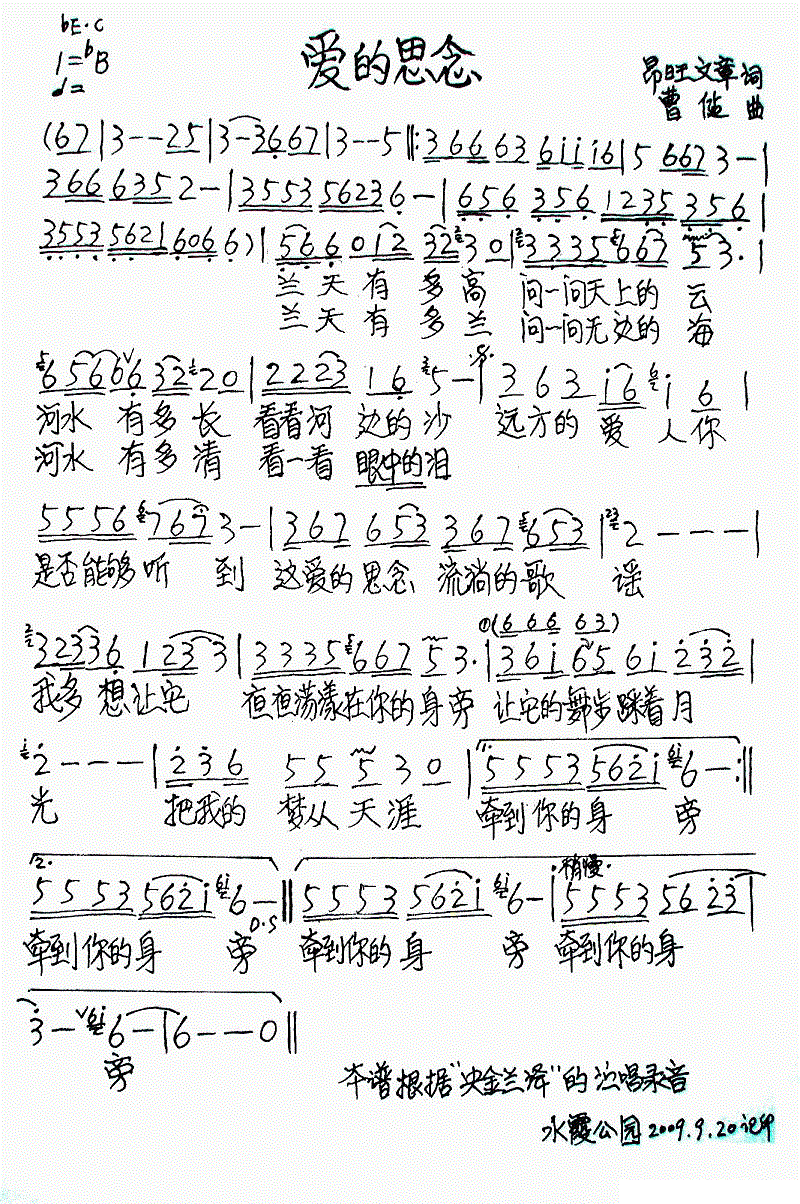 bE·C
1=bB
爱的思念
昂旺文章词
曹 曲
(67|3--25|3-3667|3--5‖:36663 6iii6|5 6673-|
3666352-|355356236-|656 356 1235 356|
35535621 606 6)|566012 3230|3335 663 53·|
兰天有多高 问一问天上的云
兰天有多兰 问一问无边的海
65666 32 20|2223 16 5-|363 i6 i6|
河水 有多长 看看河 边的沙 远方的 爱 人你
河水 有多清 看一看 眼中的泪
5556 767 3-|367 653 367 653|2---|
是否能够听 到 这爱的思念 流淌的歌 谣
①(666 63)
32336 1233|3335 667 53·|36i 65 6i 232|
我多想让它 夜夜荡漾在你的身旁 让它的舞步踩着月
2---|236 55 5 30|5553 562i 6-:‖
光 把我的 梦从天涯 牵到你的身 旁
2. 稍慢·
5553 562i 6-‖5553 562i 6-|5553 5623|
D·S
牵到你的身 旁 牵到你的身 旁 牵到你的身
3-6-|6--0‖
旁
本谱根据"央金兰泽"的演唱录音
水霞公园2009.9.20记印